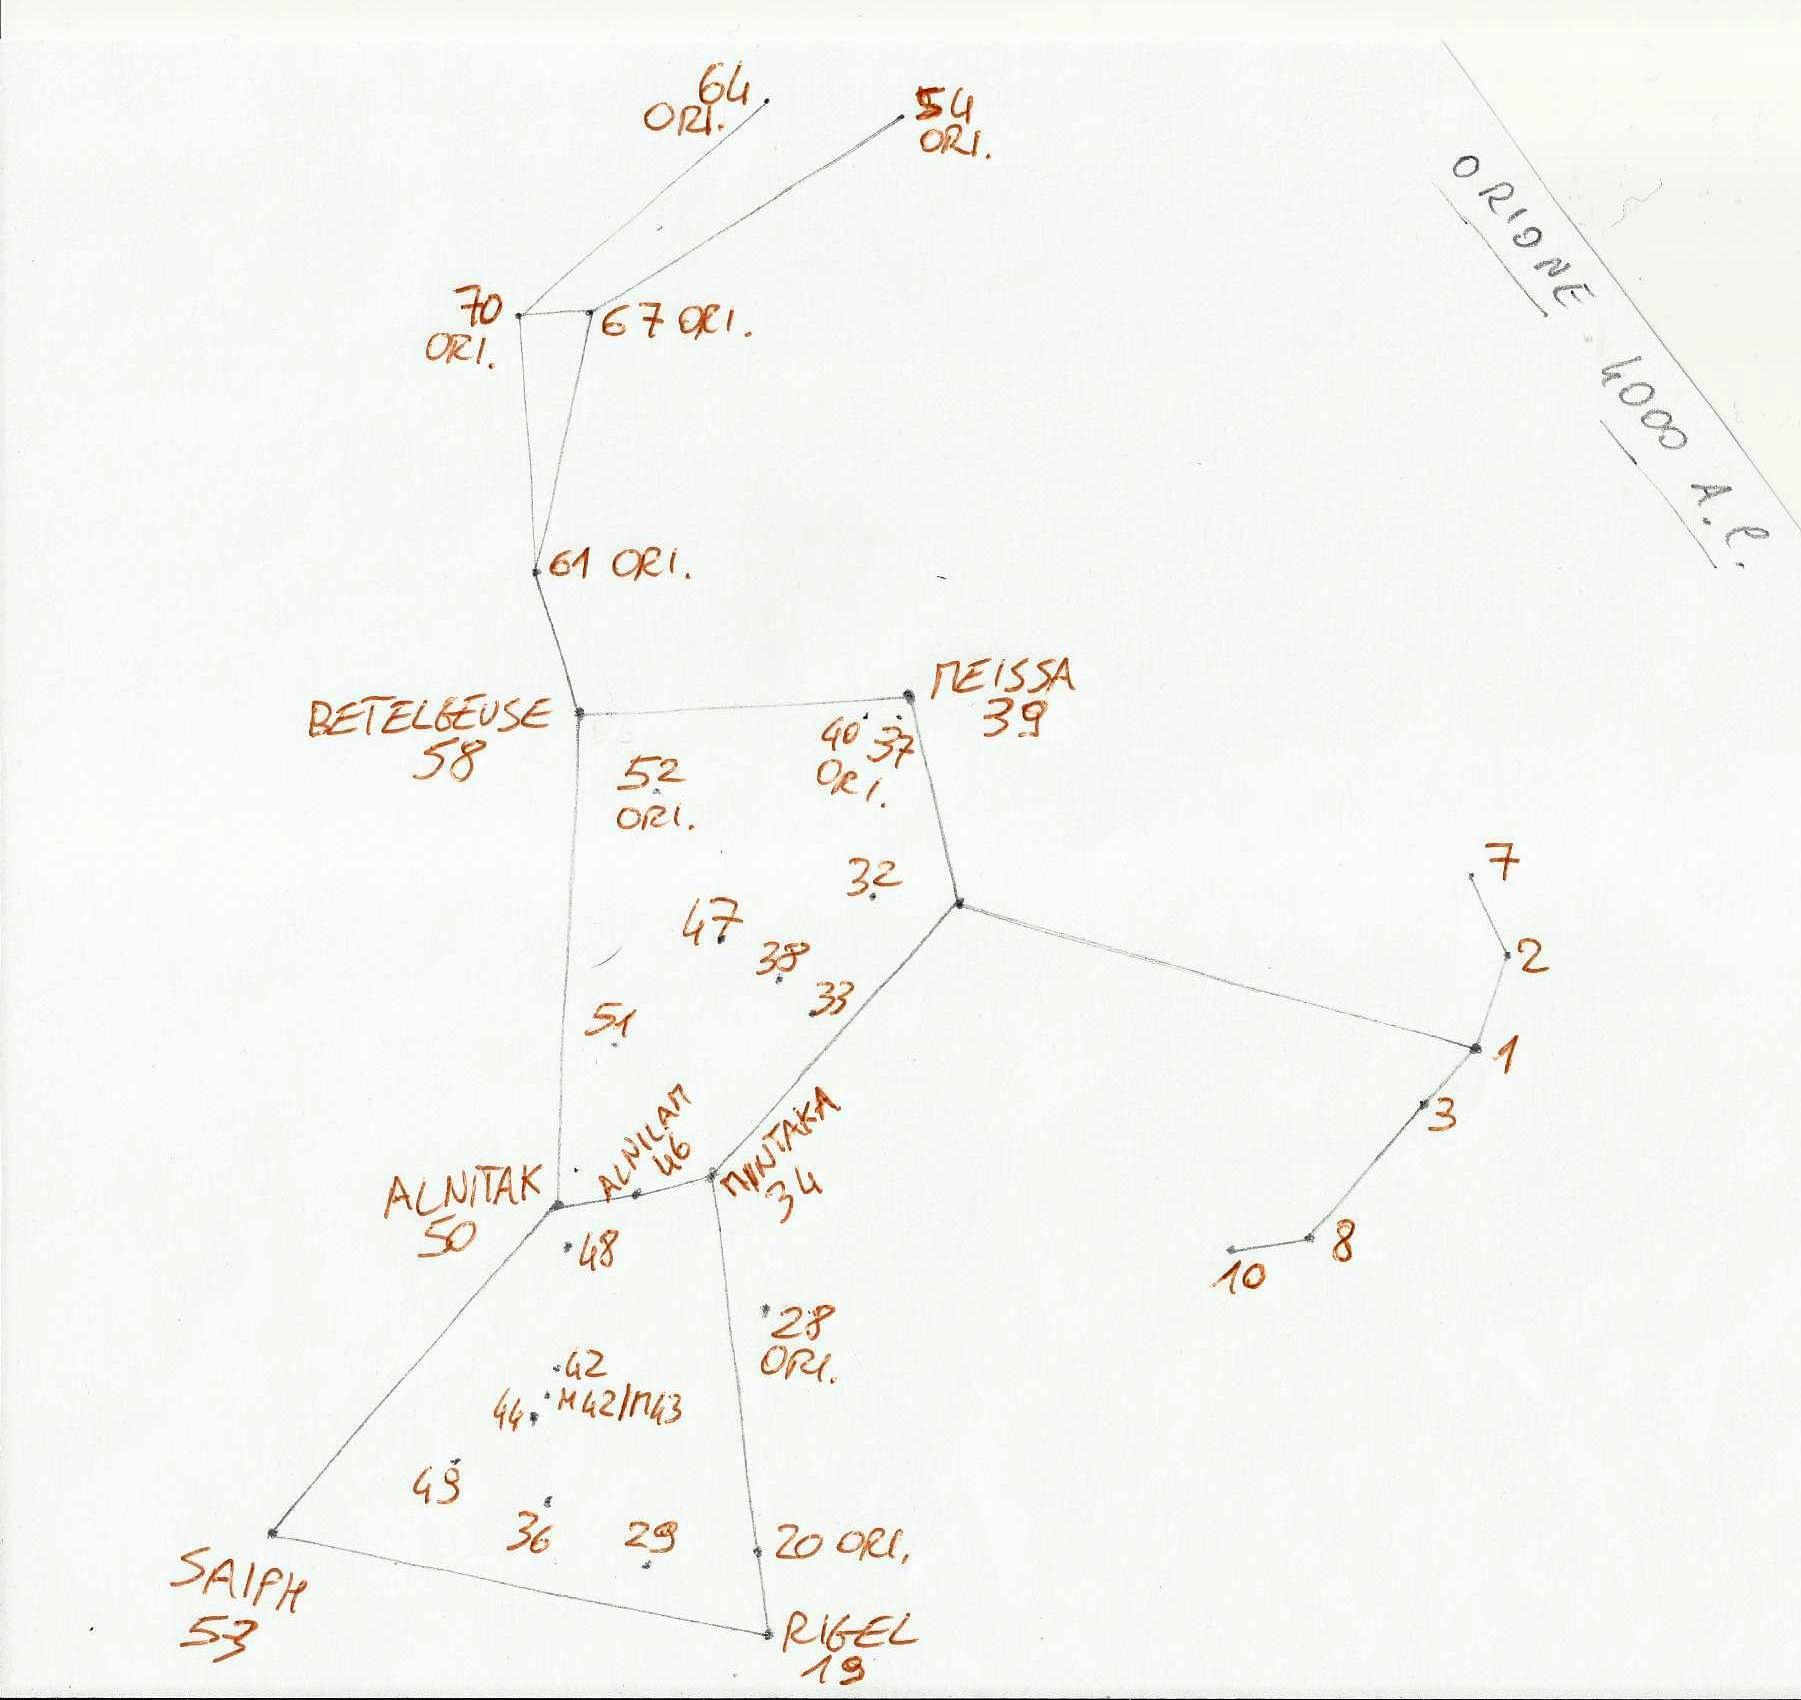 64
ORI.
54
ORI.
ORIONE 4000 A.C.
70
ORI.
67 ORI.
61 ORI.
BETELGEUSE
58
MEISSA
39
52
ORI.
40 37
ORI.
32
47
38
33
51
7
2
1
3
8
10
ALNITAK
50
ALNILAM
46
MINTAKA
34
48
28
ORI.
42
M42/M43
44
49
36
29
20 ORI.
SAIPH
53
RIGEL
19